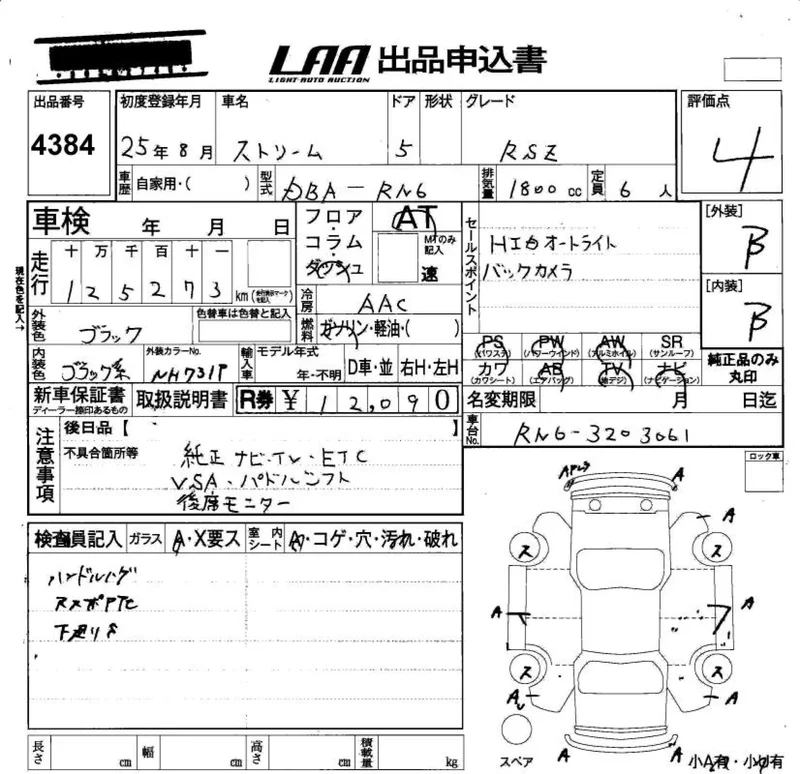 LAA 出品申込書
LIGHT AUTO AUCTION
出品番号 初度登録年月 車名 ドア 形状 グレード 評価点
4384 25年8月 ストリーム 5 RSZ 4
車歴 自家用・( ) 型式 DBA-RN6 排気量 1800cc 定員 6人
車検 年 月 日
フロア・コラム・ダッシュ AT
MTのみ記入 速
セールスポイント
HIDオートライト
バックカメラ
[外装] B
[内装] B
現在色を記入→
走行 十 万 千 百 十 一
125273 km
冷房 AAC
外装色 ブラック 色替車は色替と記入
燃料 ガソリン・軽油・( )
PS (パワステ) PW (パワーウインド) AW (アルミホイル) SR (サンルーフ)
カワ (カワシート) AB (エアバッグ) TV (地デジ) ナビ (ナビゲーション)
純正品のみ丸印
内装色 ブラック系 外装カラーNo. NH731P 輸入車 モデル年式 年・不明 D車・並 右H・左H
新車保証書 ディーラー捺印あるもの 取扱説明書 R券 ¥ 12,090
名変期限 月 日迄
車台No. RN6-3203061
注意事項
後日品【 】
不具合箇所等 純正ナビ・TV・ETC
VSA・パドルシフト
後席モニター
ロック車
検査員記入 ガラス A・X要ス 室内シート A・コゲ・穴・汚れ・破れ
ハンドルハゲ
下廻りS
A
A
A
ス ス
A A
ス ス
A A
A A
スペア
小A有・小U有
長さ cm 幅 cm 高さ cm 積載量 kg